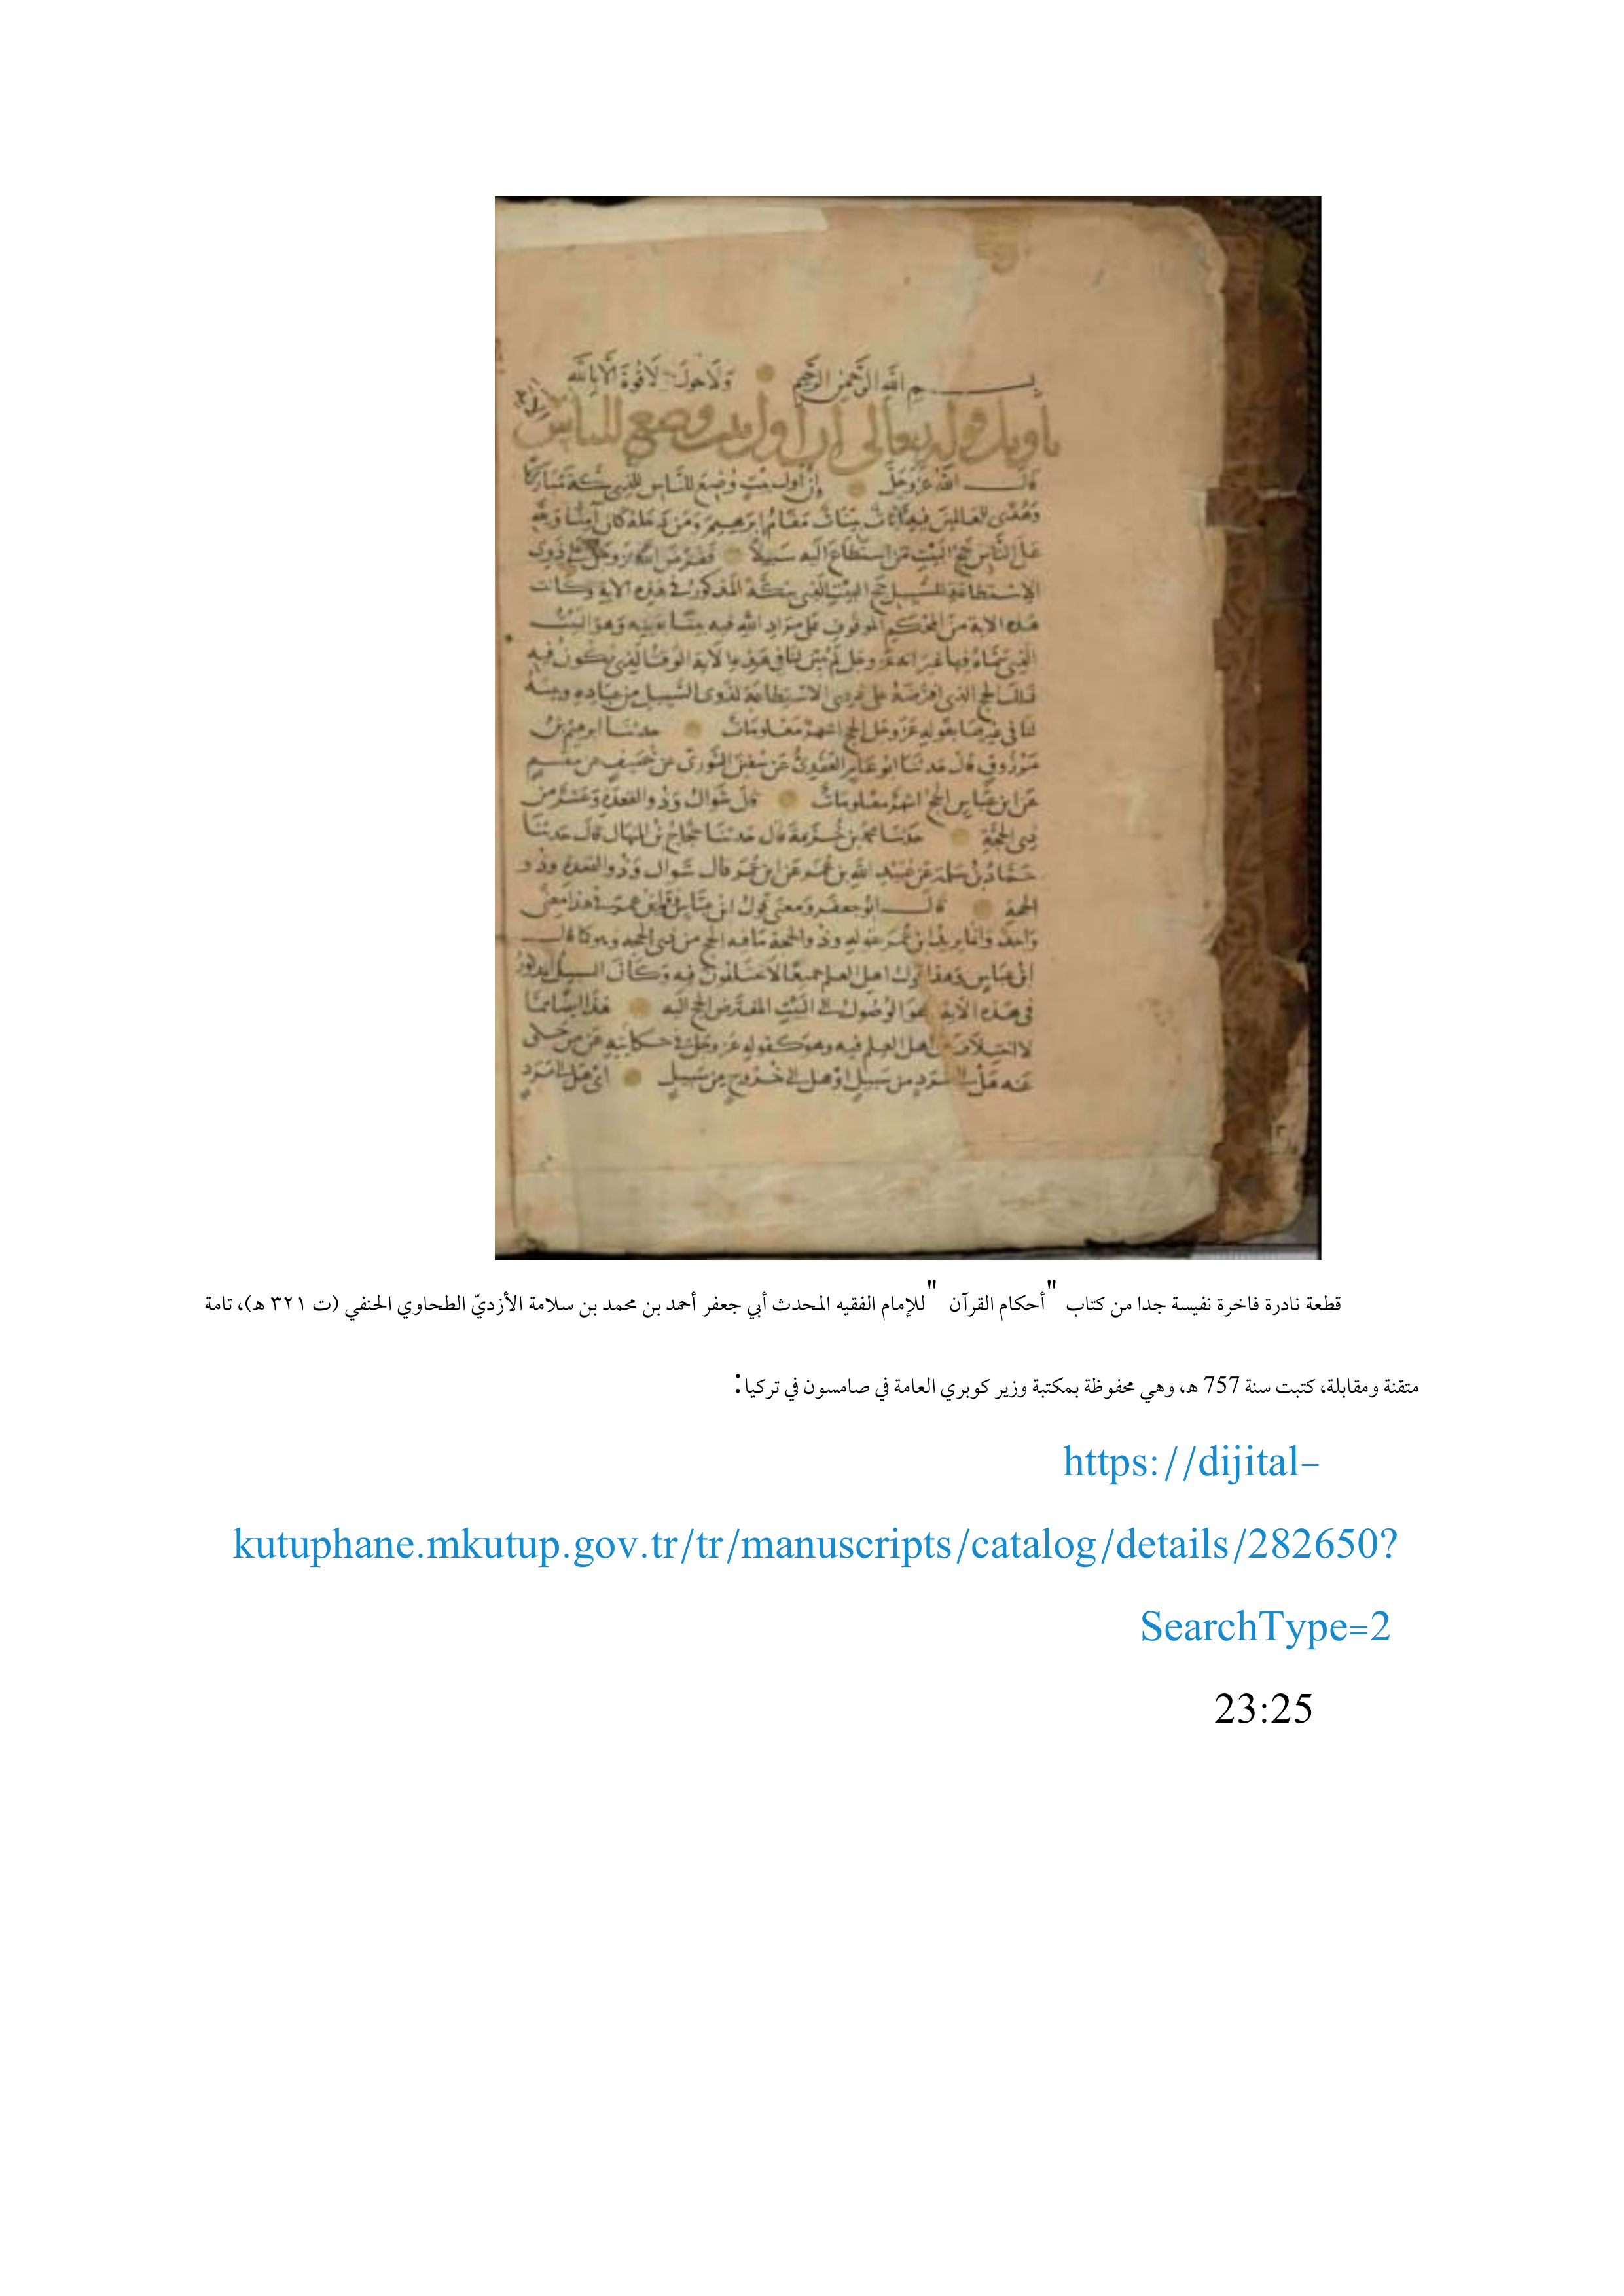 بسم الله الرحمن الرحيم ولا حول ولا قوة الا بالله
تاويل قوله تعالى إن أول بيت وضع للناس
قال الله عز وجل إن أول بيت وضع للناس للذي ببكة مباركا
وهدى للعالمين فيه آيات بينات مقام ابرهيم ومن دخله كان آمنا ولله
على الناس حج البيت من استطاع اليه سبيلا ففرض الله عز وجل على ذوي
الاستطاعة للسبيل حج البيت الذي ببكة المذكور في هذه الاية وكانت
هذه الاية من المحكم الموقوف على مراد الله فيه بيتا بعينه وهو البيت
الذي سماه فيها غير انه عز وجل لم يبين لنا في هذه الاية الوقت الذي يكون فيه
ذلك الحج الذي افترضه على ذوي الاستطاعة لذوي السبيل من عباده وبينه
لنا في غيرها بقوله عز وجل الحج اشهر معلومات حدثنا ابرهيم بن
مرزوق قال حدثنا ابو عامر العقدي عن سفين الثوري عن خصيف عن مقسم
عن ابن عباس الحج اشهر معلومات قال شوال وذو القعدة وعشر من
ذي الحجة حدثنا محمد بن خزيمة قال حدثنا حجاج بن المنهال قال حدثنا
حماد بن سلمة عن عبيد الله بن عمر عن ابن عمر قال شوال وذو القعدة وذو
الحجة قال ابو جعفر ومعنى قول ابن عباس وقول ابن عمر في هذا معنى
واحد وانما يريد ابن عمر بقوله وذو الحجة ما فيه الحج من ذي الحجة وهو كما قال
ابن عباس وهذا قول اهل العلم جميعا لا يختلفون فيه وكان السبيل المذكور
في هذه الاية هو الوصول الى البيت المفترض الحج اليه هذا ايضا مما
لا اختلاف بين اهل العلم فيه وهو كقوله عز وجل في حكايته عن من حكى
عنه هل الى مرد من سبيل او هل الى خروج من سبيل اي هل الى مرد
قطعة نادرة فاخرة نفيسة جدا من كتاب "أحكام القرآن "للإمام الفقيه المحدث أبي جعفر أحمد بن محمد بن سلامة الأزديّ الطحاوي الحنفي (ت ٣٢١ هـ)، تامة
متقنة ومقابلة، كتبت سنة 757 هـ، وهي محفوظة بمكتبة وزير كوبري العامة في صامسون في تركيا:
https://dijital-
kutuphane.mkutup.gov.tr/tr/manuscripts/catalog/details/282650?
SearchType=2
23:25